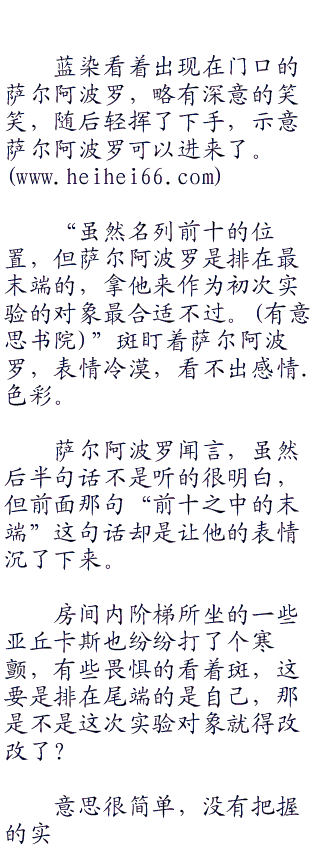 蓝染看着出现在门口的
萨尔阿波罗，略有深意的笑
笑，随后轻挥了下手，示意
萨尔阿波罗可以进来了。
(www.heihei66.com)
“虽然名列前十的位
置，但萨尔阿波罗是排在最
末端的，拿他来作为初次实
验的对象最合适不过。(有意
思书院)”斑盯着萨尔阿波
罗，表情冷漠，看不出感情.
色彩。
萨尔阿波罗闻言，虽然
后半句话不是听的很明白，
但前面那句“前十之中的末
端”这句话却是让他的表情
沉了下来。
房间内阶梯所坐的一些
亚丘卡斯也纷纷打了个寒
颤，有些畏惧的看着斑，这
要是排在尾端的是自己，那
是不是这次实验对象就得改
改了？
意思很简单，没有把握
的实